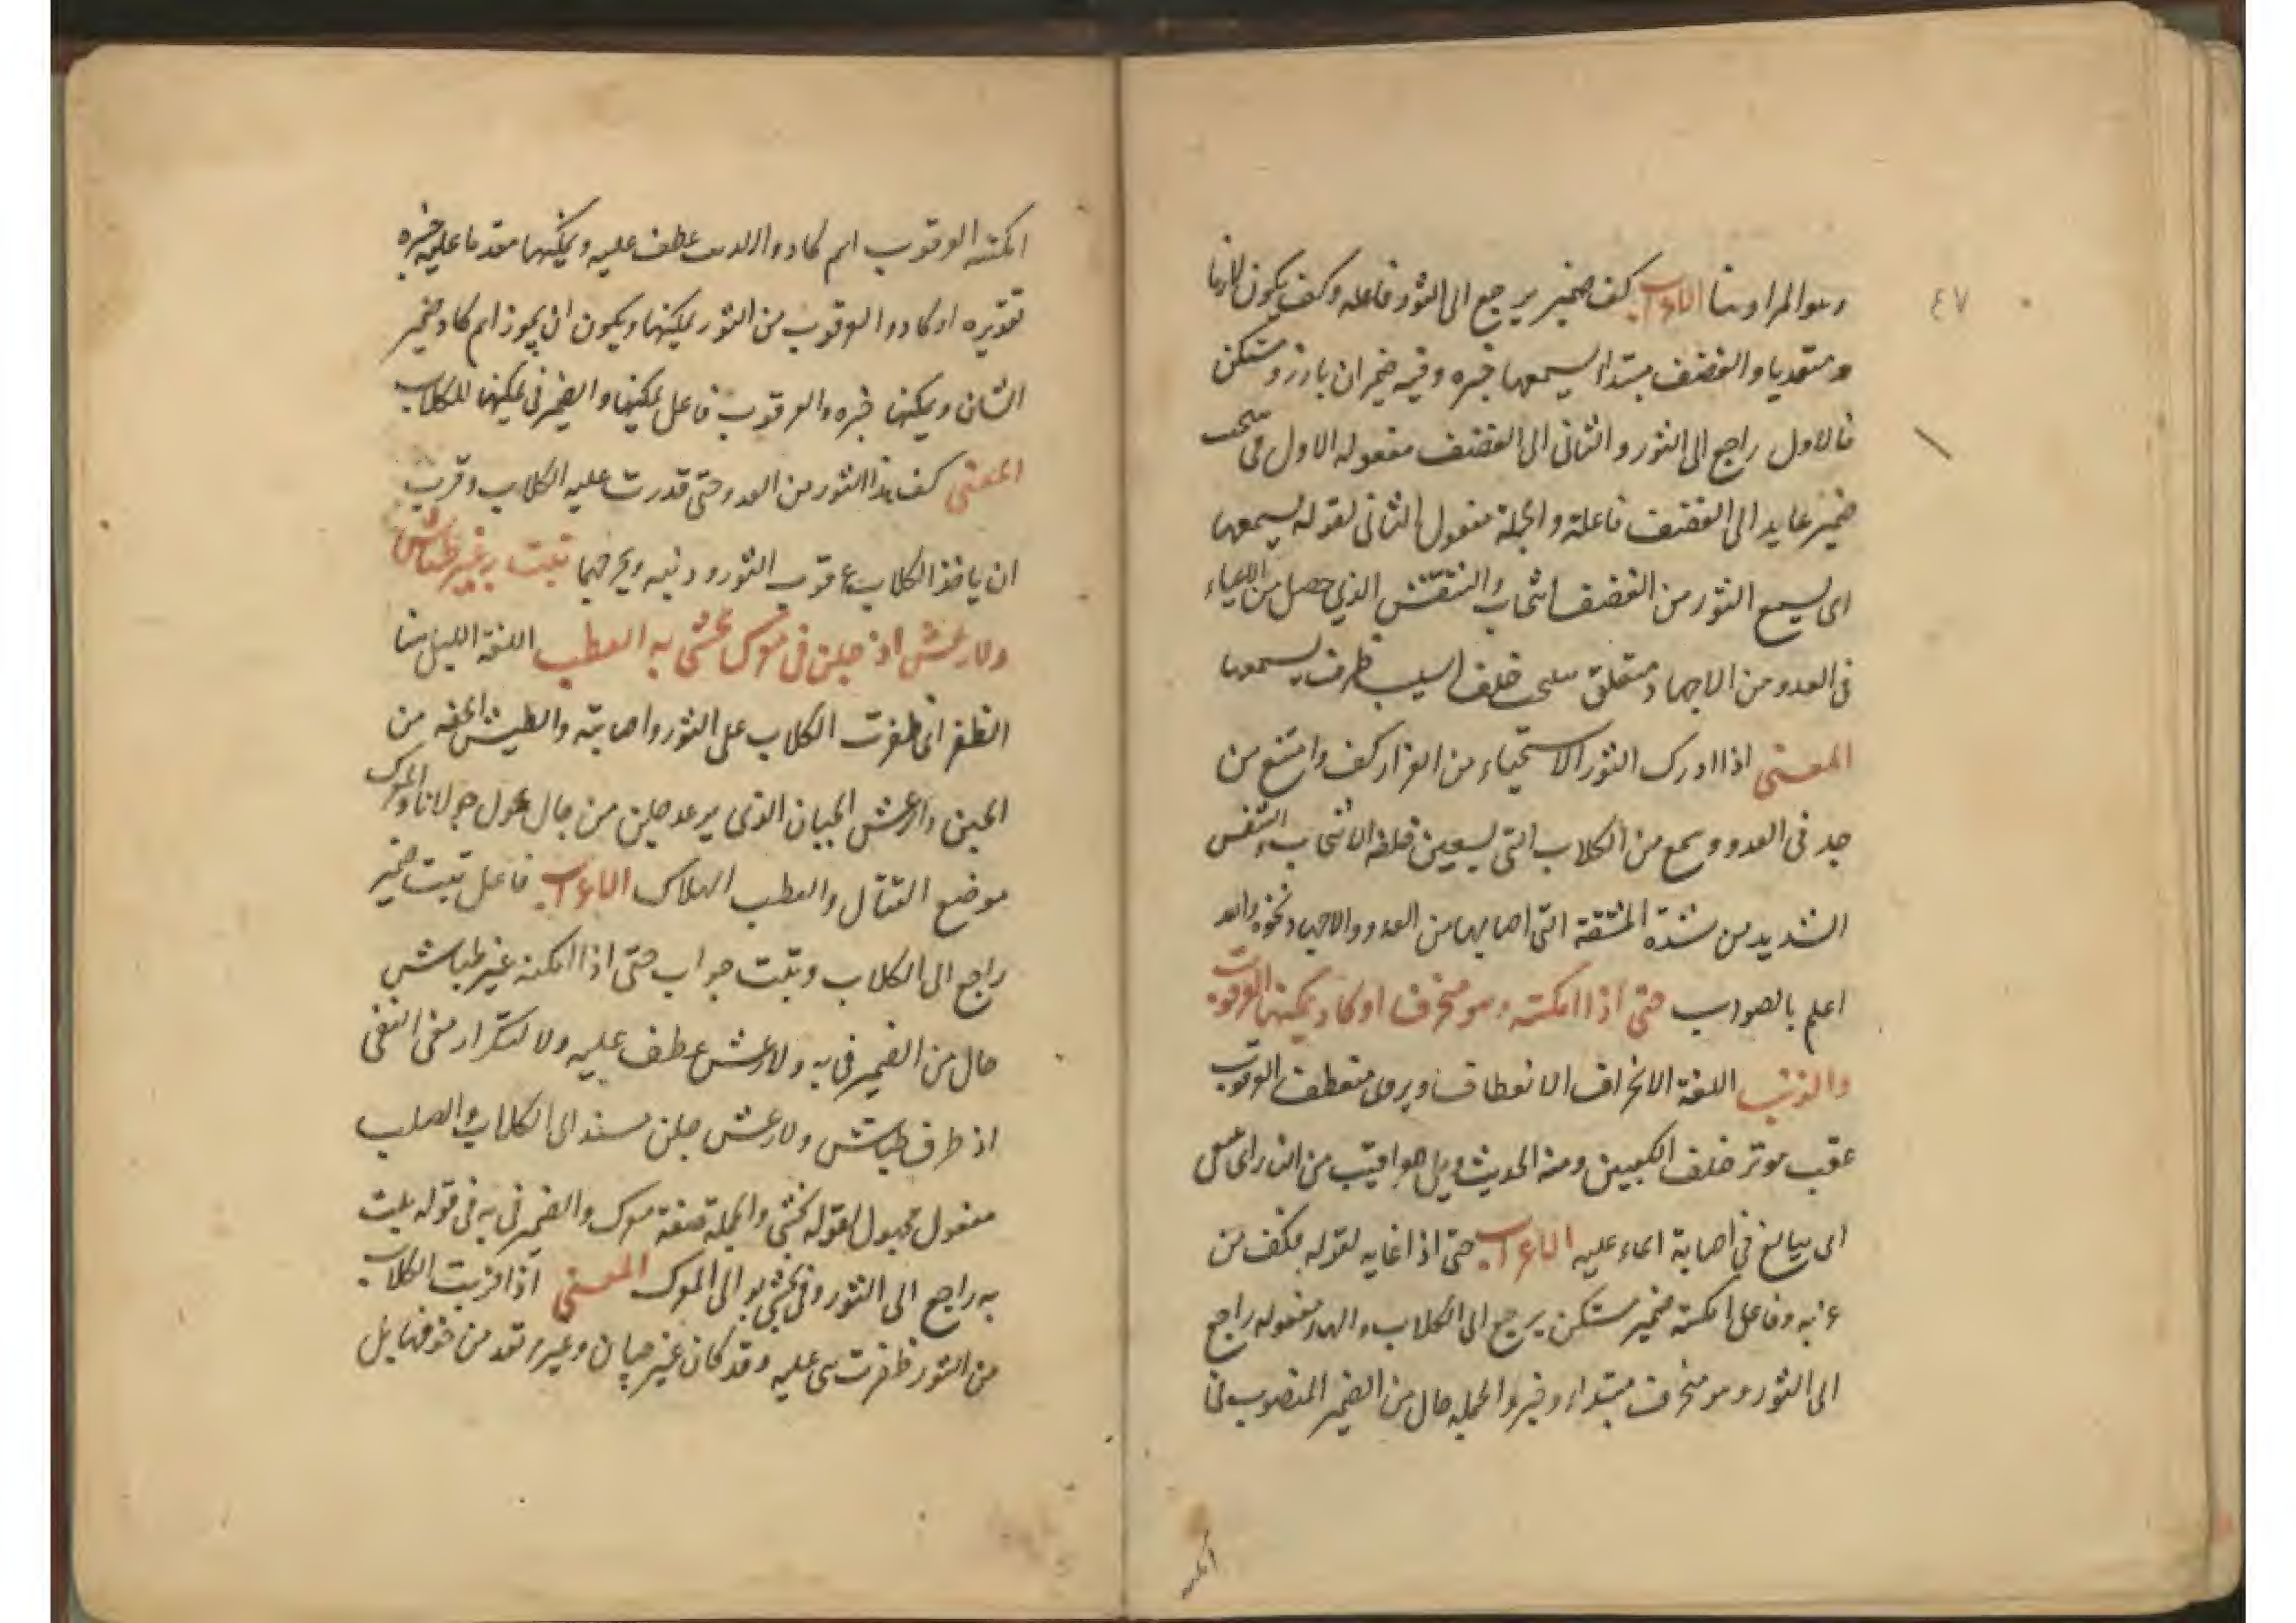 ٤٧
وهو المراد هنا الاعراب كف ضمير يرجع الى الثور فاعله وكف يكون لازما
ومتعديا والغضف مبتدا يسمعها خبره وفيه ضميران بارز ومستكن
فالاول راجع الى الثور والثانى الى الغضف مفعوله الاول فى
ضمير عايد الى الغضف فاعلة والجملة مفعول الثانى لقوله يسمعها
اى يسمع الثور من الغضف انتحاب والتنفس الذي حصل من الاعياء
فى العدو من الاجهاد متعلق خلف السبيب ظرف يسمعها
المعنى اذا ادرك الثور الاستحياء من الفرار كف وامتنع من
جد فى العدو وسمع من الكلاب التى يسعين خلفه الانتحاب والتنفس
الشديد من شدة المشقة التى اصابها من العدو والاجهاد ونحوه والله
اعلم بالصواب حتى اذا امكنته وهو منحرف او كاد يمكنها العرقوب
والذنب اللغة الانحراف الانعطاف ويروى منعطف العرقوب
عقب موتر خلف الكعبين ومنه الحديث ويل للعراقيب من النار اى
اى يبالغ فى اصابة الماء عليه الاعراب حتى اذا غايه لقوله فكف من
غربه وفاعل امكنته ضمير مستكن يرجع الى الكلاب والهاء مفعوله راجع
الى الثور وهو منحرف مبتداء وخبر والجمله حال من الضمير المنصوب فى
امكنته
امكنته العرقوب اسم كاد والذنب عطف عليه ويمكنها مقدما عليه خبره
تقديره او كاد العرقوب من الثور يمكنها ويكون ان يجوز اسم كاد ضمير
الشان ويمكنها خبره والعرقوب فاعل يمكنها والضمير فى يمكنها للكلاب
المعنى كف هذا الثور من العدو حتى قدرت عليه الكلاب وقرب
ان ياخذ الكلاب عرقوب الثور وذنبه ويجرحهما بلت به غير طياش
ولا رعش اذ جلن فى معرك يخشى به العطب اللغة البل هنا
الظفر اى ظفرت الكلاب على الثور واصابته والطيش الخفه من
الجبن والرعش الجبان الذى يرعد جلن من جال يجول جولانا والمعرك
موضع القتال والعطب الهلاك الاعراب فاعل بلت ضمير
راجع الى الكلاب وبلت جواب حتى اذا امكنه غير طياش
حال من الضمير فى به ولا رعش عطف عليه ولا لتكرار معنى النفى
اذ ظرف طياش ولا رعش جلن مسند الى الكلاب والعطب
مفعول مجهول لقوله يخشى والجملة صفة معرك والضمير فى به فى قوله بلت
به راجع الى الثور وفى يخشى به الى المعرك المعنى اذا قربت الكلاب
من الثور ظفرت هى عليه وقد كان غير جبان وغير مرتعد من خوفها بل